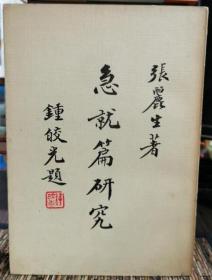 張麗生著
急就篇研究
鍾皎光題